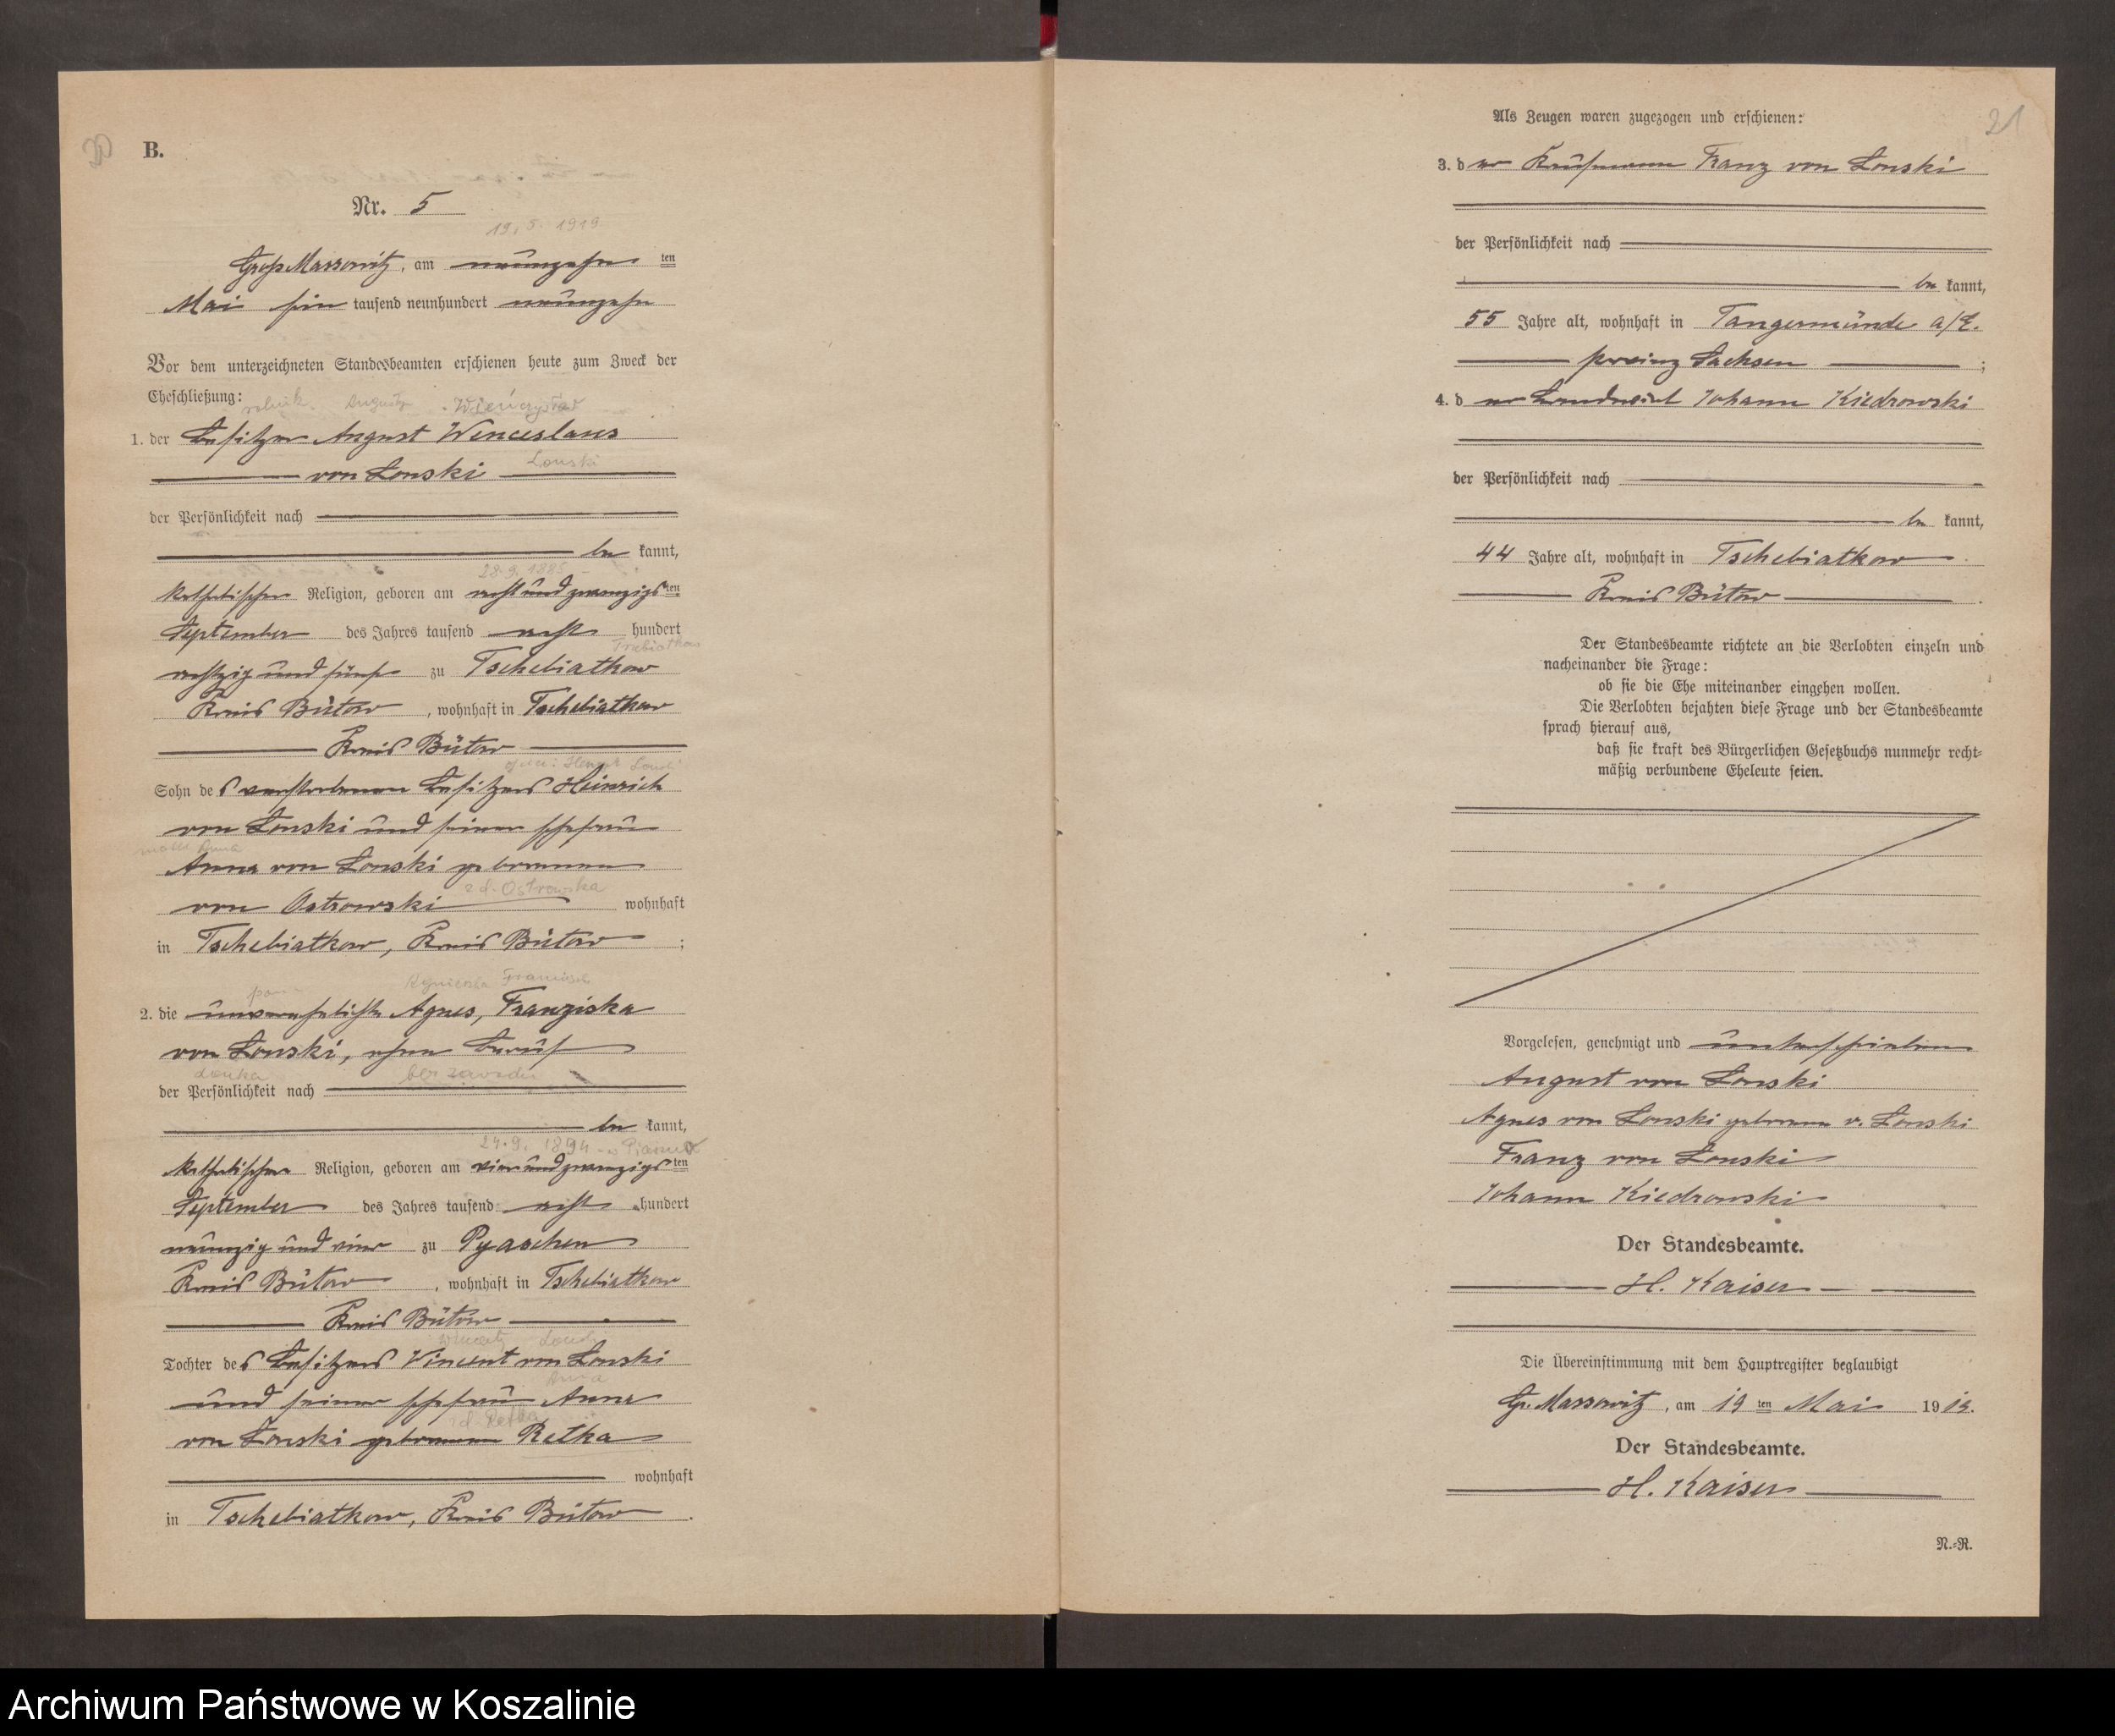 B.
Nr. 5
19. 5. 1919
Groß Massowitz, am neunzehn ten
Mai ein tausend neunhundert neunzehn
Vor dem unterzeichneten Standesbeamten erschienen heute zum Zweck der
Eheschließung:
rolnik Augusty
1. der Besitzer August Wenceslaus
von Lonski Lonski
der Persönlichkeit nach
be kannt,
28.9.1885
katholischer Religion, geboren am achtundzwanzigs ten
September des Jahres tausend acht hundert
Trzebiatkow
achtzig und fünf zu Tschebiatkow
Kreis Bütow, wohnhaft in Tschebiatkow
Kreis Bütow
Sohn des verstorbenen Besitzers Heinrich
von Lonski und seiner Ehefrau
matk Anna
Anna von Lonski geborenen
z d. Ostrowska
von Ostrowski wohnhaft
in Tschebiatkow, Kreis Bütow ;
Agnieszka Franciszk
2. die unverehelichte Agnes, Franziska
von Lonski, ohne Beruf
Lonska bez zawodu
der Persönlichkeit nach
be kannt,
24.9. 1894
katholischer Religion, geboren am vierundzwanzigs ten
September des Jahres tausend acht hundert
neunzig und vier zu Pyaschen
Kreis Bütow, wohnhaft in Tschebiatkow
Kreis Bütow
Tochter des Besitzers Vincent von Lonski
Anna
und seiner Ehefrau Anna
z d. Retka
von Lonski geborenen Retka
wohnhaft
in Tschebiatkow, Kreis Bütow.
21
Als Zeugen waren zugezogen und erschienen:
3. der Kaufmann Franz von Lonski
der Persönlichkeit nach
be kannt,
55 Jahre alt, wohnhaft in Tangermünde a/E.
Provinz Sachsen ;
4. der Landwirt Johann Kiedrowski
der Persönlichkeit nach
be kannt,
44 Jahre alt, wohnhaft in Tschebiatkow
Kreis Bütow.
Der Standesbeamte richtete an die Verlobten einzeln und
nacheinander die Frage:
ob sie die Ehe miteinander eingehen wollen.
Die Verlobten bejahten diese Frage und der Standesbeamte
sprach hierauf aus,
daß sie kraft des Bürgerlichen Gesetzbuchs nunmehr recht-
mäßig verbundene Eheleute seien.
Vorgelesen, genehmigt und unterschrieben
August von Lonski
Agnes von Lonski geborene v. Lonski
Franz von Lonski
Johann Kiedrowski
Der Standesbeamte.
H. Kaiser
Die Übereinstimmung mit dem Hauptregister beglaubigt
Gr. Massowitz, am 19 ten Mai 1919.
Der Standesbeamte.
H. Kaiser
N.-R.
Archiwum Państwowe w Koszalinie